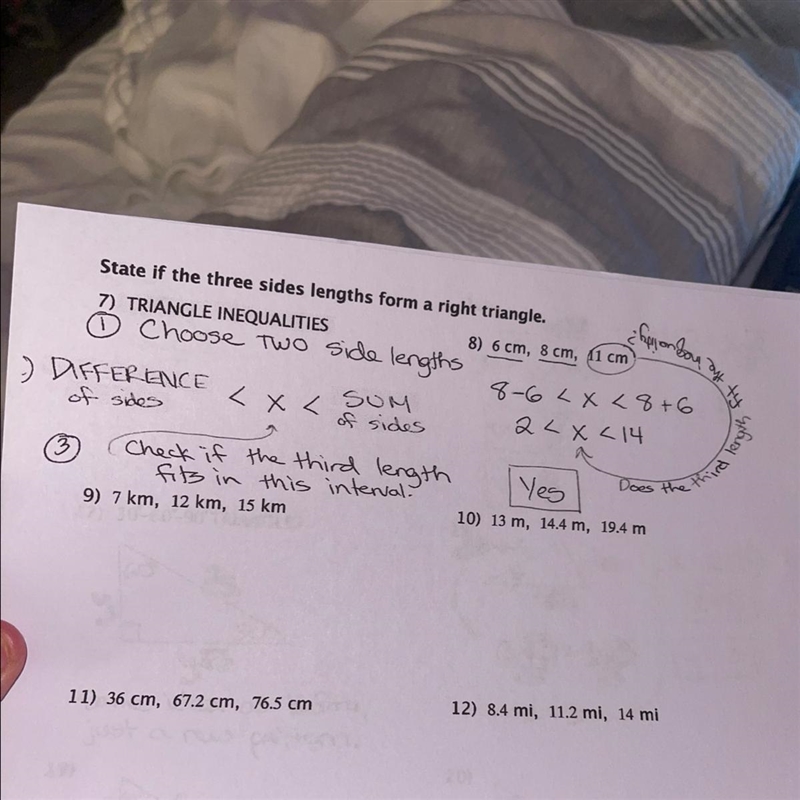 State if the three sides lengths form a right triangle.
7) TRIANGLE INEQUALITIES
① Choose TWO side lengths
) DIFFERENCE of sides < x < SUM of sides
③ Check if the third length
fits in this interval.
8) 6 cm, 8 cm, 11 cm
8-6 < x < 8+6
2 < x < 14
Yes
Does the third length
fit the inequality?
9) 7 km, 12 km, 15 km
10) 13 m, 14.4 m, 19.4 m
11) 36 cm, 67.2 cm, 76.5 cm
12) 8.4 mi, 11.2 mi, 14 mi